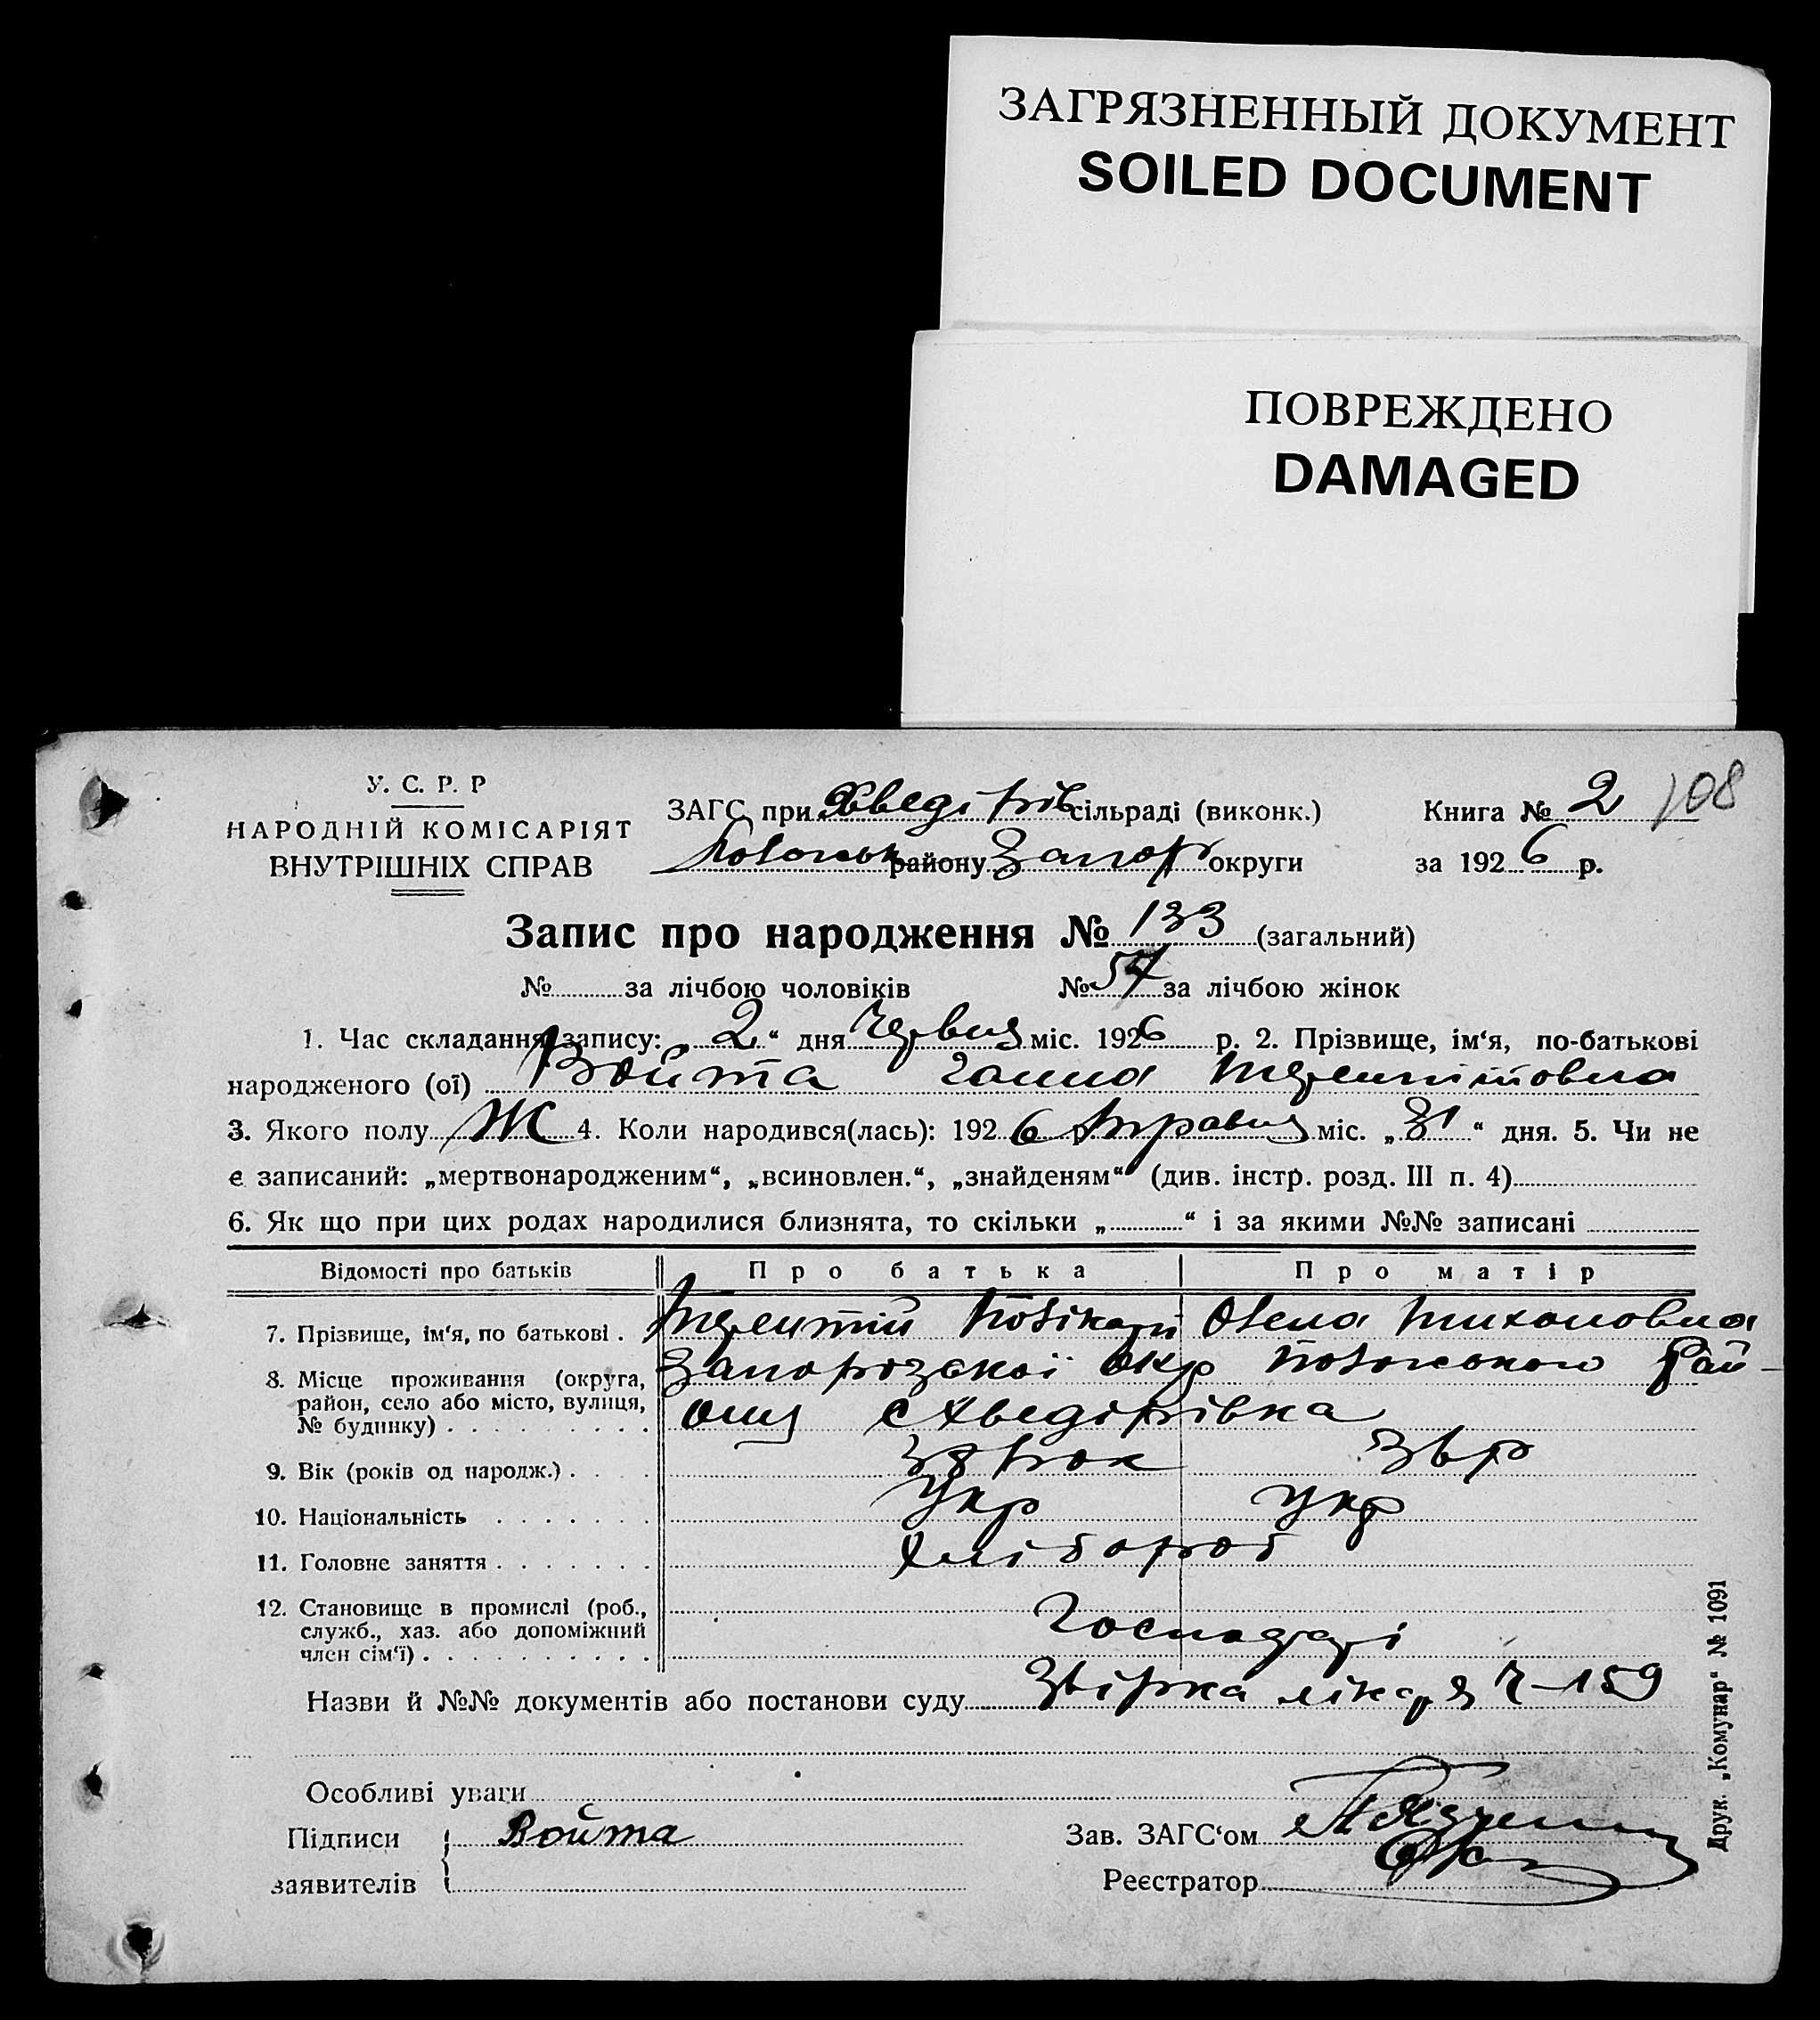 ЗАГРЯЗНЕННЫЙ ДОКУМЕНТ
SOILED DOCUMENT
ПОВРЕЖДЕНО
DAMAGED
У. С. Р. Р
НАРОДНІЙ КОМІСАРІЯТ
ВНУТРІШНІХ СПРАВ
ЗАГС при Хведірів сільраді (виконк.)
району Запор округи
Книга № 2 108
за 1926 р.
Запис про народження № 133 (загальний)
№ за лічбою чоловіків № 54 за лічбою жінок
1. Час складання запису: 2“ дня червня міс. 1926 р. 2. Прізвище, ім‘я, по-батькові
народженого (ої) Войта Ганна Терентітовна
3. Якого полу Ж 4. Коли народився(лась): 1926 р травня міс. „31“ дня. 5. Чи не
є записаний: „мертвонародженим“, „всиновлен.“, „знайденям“ (див. інстр. розд. III п. 4)
6. Як що при цих родах народилися близнята, то скільки „ “ і за якими №№ записані
Відомості про батьків Про батька Про матір
7. Прізвище, ім‘я, по батькові . Терентій Олена Тихоновна
8. Місце проживання (округа, Запорозскої окр Рай-
район, село або місто, вулиця, ону с Хведірівка
№ будинку)
9. Вік (років од народж.) рок
10. Національність укр укр
11. Головне заняття хлібороб
12. Становище в промислі (роб.,
служб., хаз. або допоміжний Господарі
член сім‘ї)
Назви й №№ документів або постанови суду Звірка лікаря Ч-159
Особливі уваги
Підписи Войта
заявителів
Зав. ЗАГС‘ом
Реєстратор
Друк. „Комунар“ № 1091